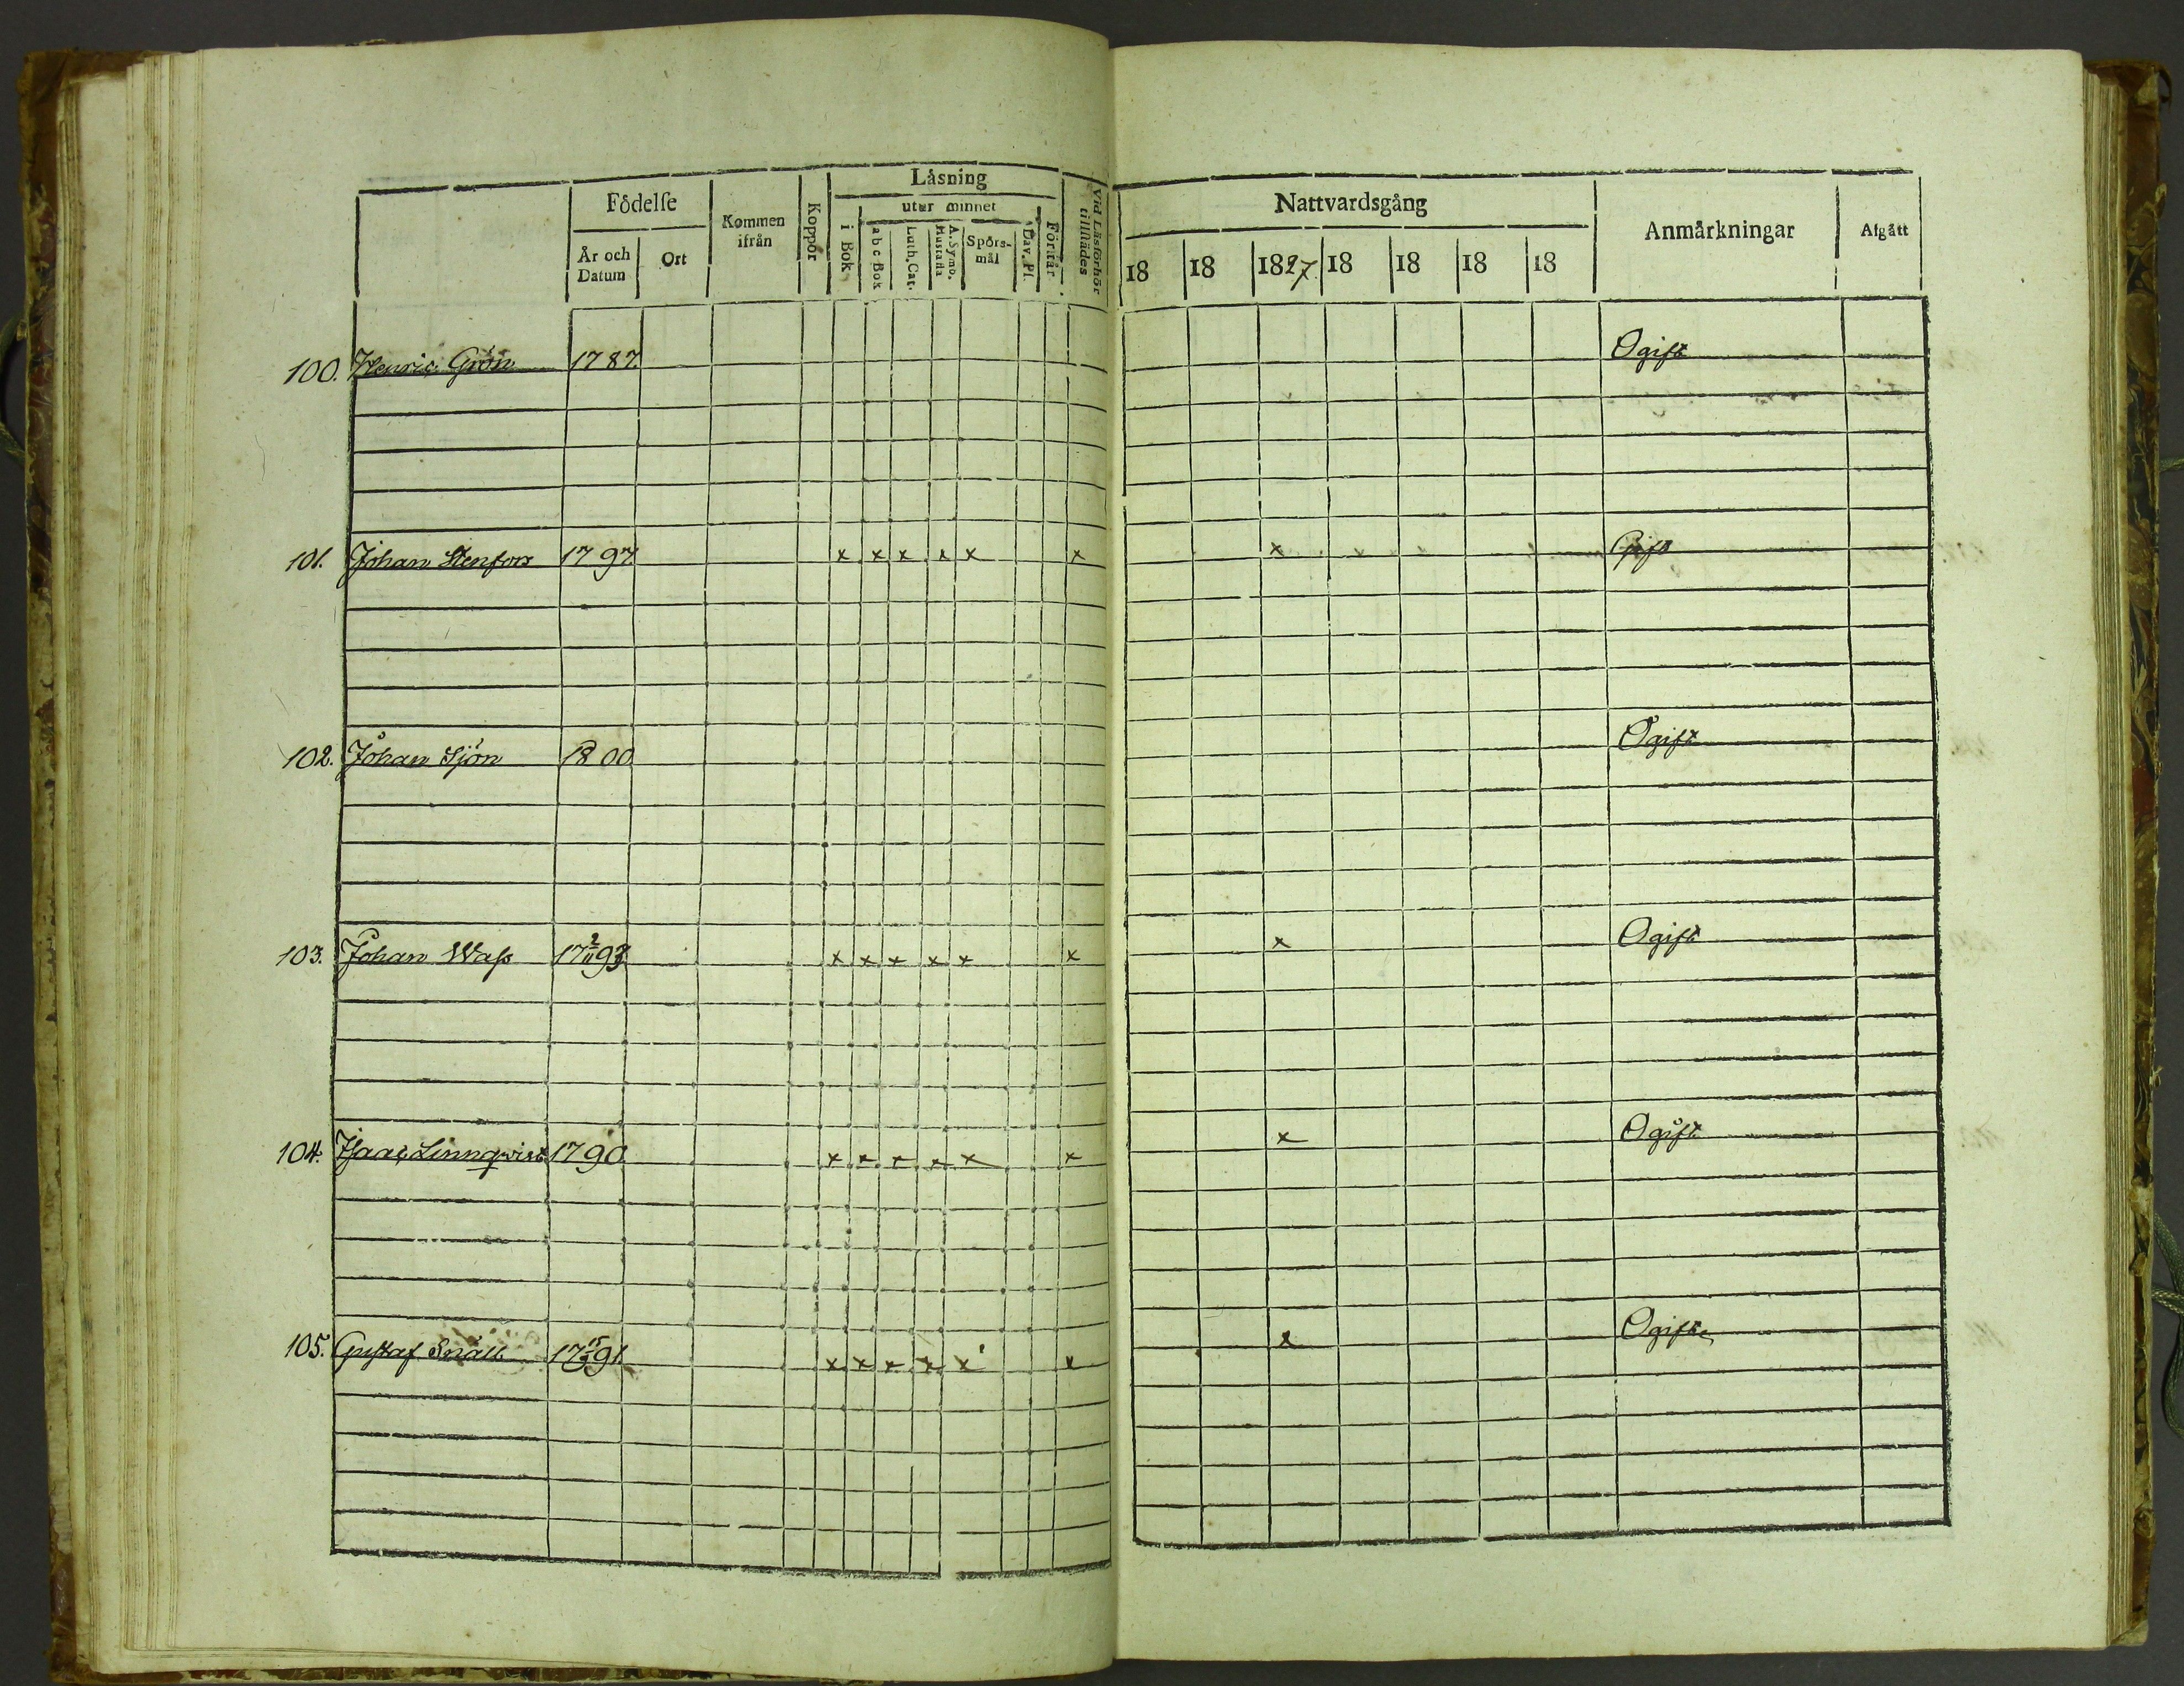 Födelse
År och Datum
Ort
Kommen ifrån
Koppor
Läsning
utur minnet
i Bok
a b c Bok
Luth. Cat.
A. Symb. Hustafla
Spörsmål
Dav. Ps.
Förstår
Vid Läsförhör tillstädes
Nattvardsgång
18 18 1827 18 18 18 18
Anmärkningar
Afgått
100. Henric Grön 1787. Ogift
101. Johan Stenfors 1797 x x x x x x x Gift
102. Johan Sjön 1800 Ogift
103. Johan Wass 17 2/11 93 x x x x x x x Ogift
104. Isaac Linnqwist 1790 x x x x x x x Ogift
105. Gustaf Snäll 1791. x x x x x x x Ogift